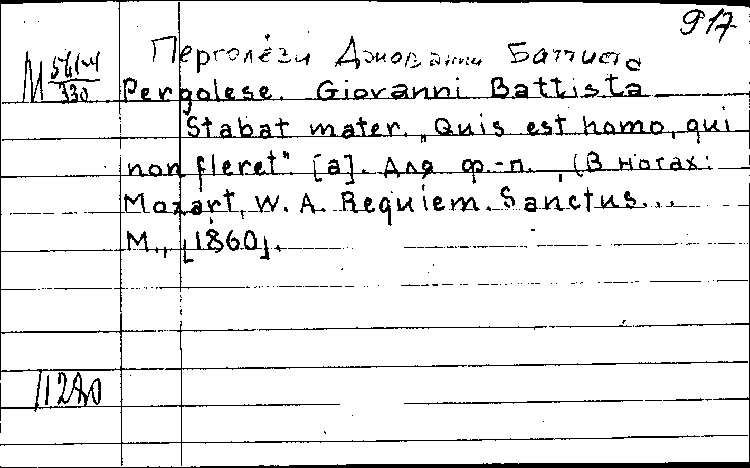 917
Перголези Джованни Баттиста
М
330
Pergolese. Giovanni Battista
Stabat mater. „Quis est homo, qui
non fleret" [a]. Для ф.-п. , (В нотах:
Mozart, W. A. Requiem. Sanctus...
М., [1860].